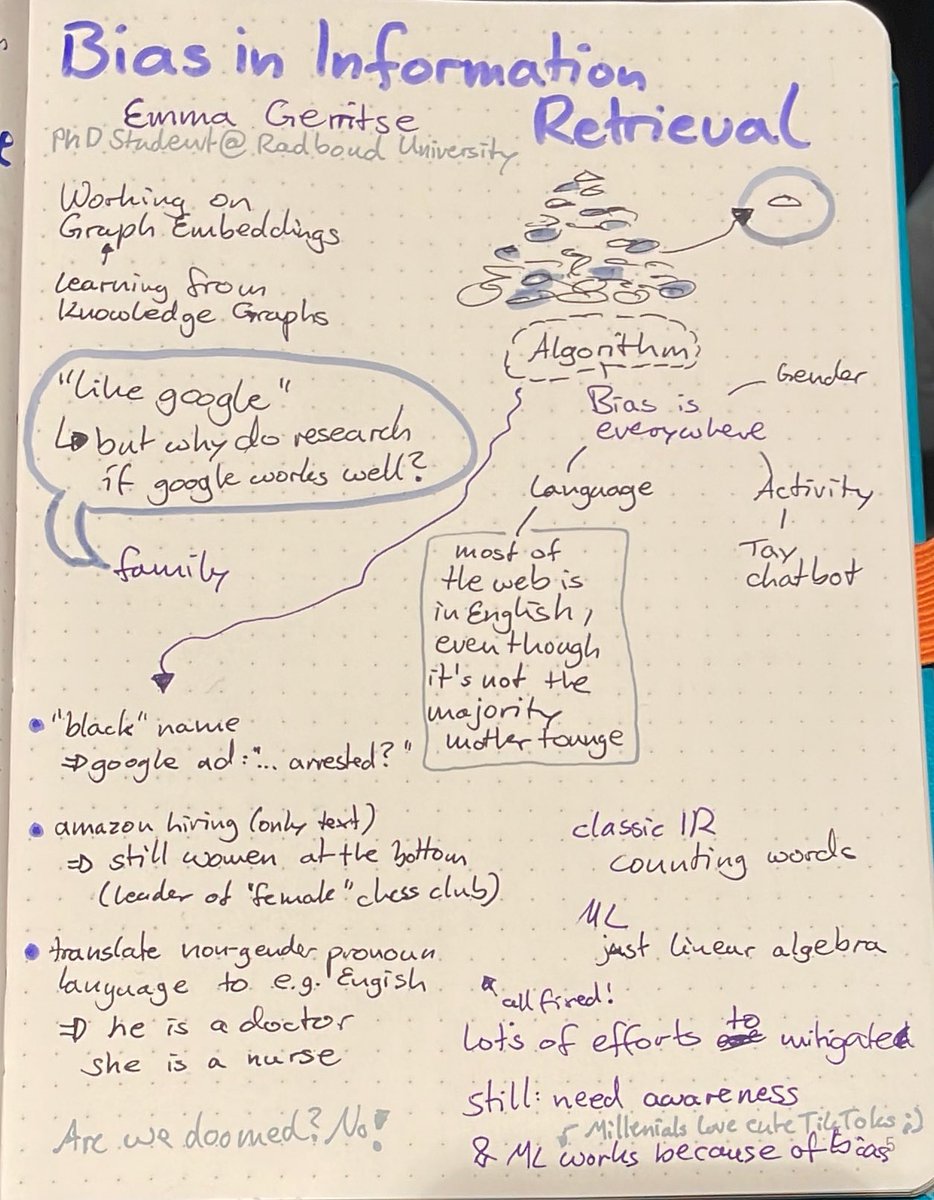 Bias in Information
Retrieval
Emma Gerritse
PhD Student @ Radboud University
Working on
Graph Embeddings
Learning from
Knowledge Graphs
"like google"
but why do research
if google works well?
family
Algorithm
Bias is
everywhere
Gender
Language
Activity
Tay
chatbot
most of
the web is
in English,
even though
it's not the
majority
mother tounge
• "black" name
⇒ google ad: "... arrested?"
• amazon hiring (only text)
⇒ still women at the bottom
(leader of "female" chess club)
• translate non-gender pronoun
language to e.g. Engish
⇒ he is a doctor
she is a nurse
Are we doomed? No!
classic IR
counting words
ML
just linear algebra
all fired!
lots of efforts to mitigate
still: need awareness
Millenials love cute TikToks ;)
& ML works because of bias
5